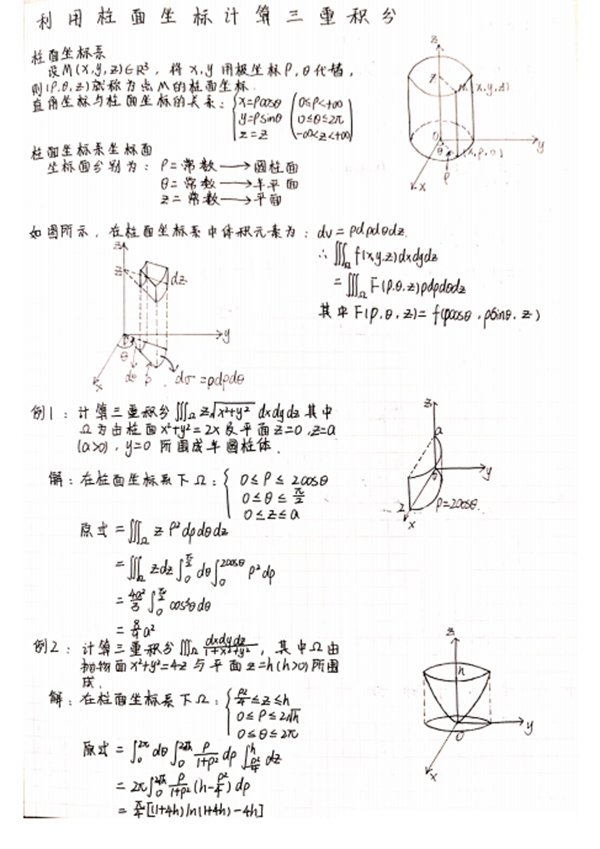 利用柱面坐标计算三重积分
柱面坐标系
设M(x,y,z)∈R³, 将x,y用极坐标ρ,θ代替,
则(ρ,θ,z)就称为点M的柱面坐标.
直角坐标与柱面坐标的关系: { x=ρcosθ (0≤ρ<+∞
y=ρsinθ 0≤θ≤2π
z=z -∞<z<+∞)
z
z
M(x,y,z)
O
θ
ρ
(x,ρ,0)
y
x
柱面坐标系坐标面
坐标面分别为: ρ=常数 → 圆柱面
θ=常数 → 半平面
z=常数 → 平面
如图所示, 在柱面坐标系中体积元素为: dv=ρdρdθdz.
∴ ∭Ω f(x,y,z)dxdydz
= ∭Ω F(ρ,θ,z)ρdρdθdz
其中F(ρ,θ,z)=f(ρcosθ, ρsinθ, z)
z
z
dz
y
θ
x
dθ ρ dσ=ρdρdθ
例1: 计算三重积分∭Ω z√(x²+y²) dxdydz 其中
Ω为由柱面x²+y²=2x及平面z=0, z=a
(a>0), y=0 所围成半圆柱体.
解: 在柱面坐标系下Ω: { 0≤ρ≤2cosθ
0≤θ≤π/2
0≤z≤a
原式 = ∭Ω z ρ²dρdθdz
= ∭ zdz ∫₀^(π/2) dθ ∫₀^(2cosθ) ρ²dρ
= 4a²/3 ∫₀^(π/2) cos³θdθ
= 8/9 a²
z
a
y
2
x
ρ=2cosθ.
例2: 计算三重积分∭Ω dxdydz/(1+x²+y²), 其中Ω由
抛物面x²+y²=4z与平面z=h(h>0)所围
成.
解: 在柱面坐标系下Ω: { ρ²/4≤z≤h
0≤ρ≤2√h
0≤θ≤2π
原式 = ∫₀^(2π) dθ ∫₀^(2√h) ρ/(1+ρ²) dρ ∫_(ρ²/4)^h dz
= 2π ∫₀^(2√h) ρ/(1+ρ²) (h-ρ²/4) dρ
= π/4 [(1+4h)ln(1+4h)-4h]
z
h
O
y
x